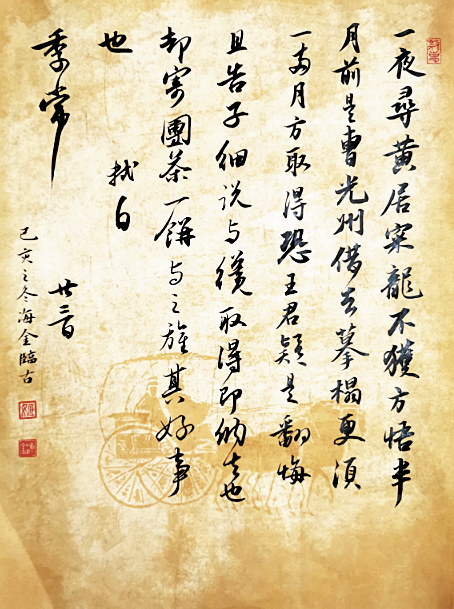 一夜尋黃居寀龍不獲方悟半
月前是曹光州借去摹榻更須
一兩月方取得恐王君疑是翻悔
且告子細說与纔取得即納去也
却寄團茶一餅与之旌其好事
也 軾白
季常 廿三日
己亥之冬海金臨古